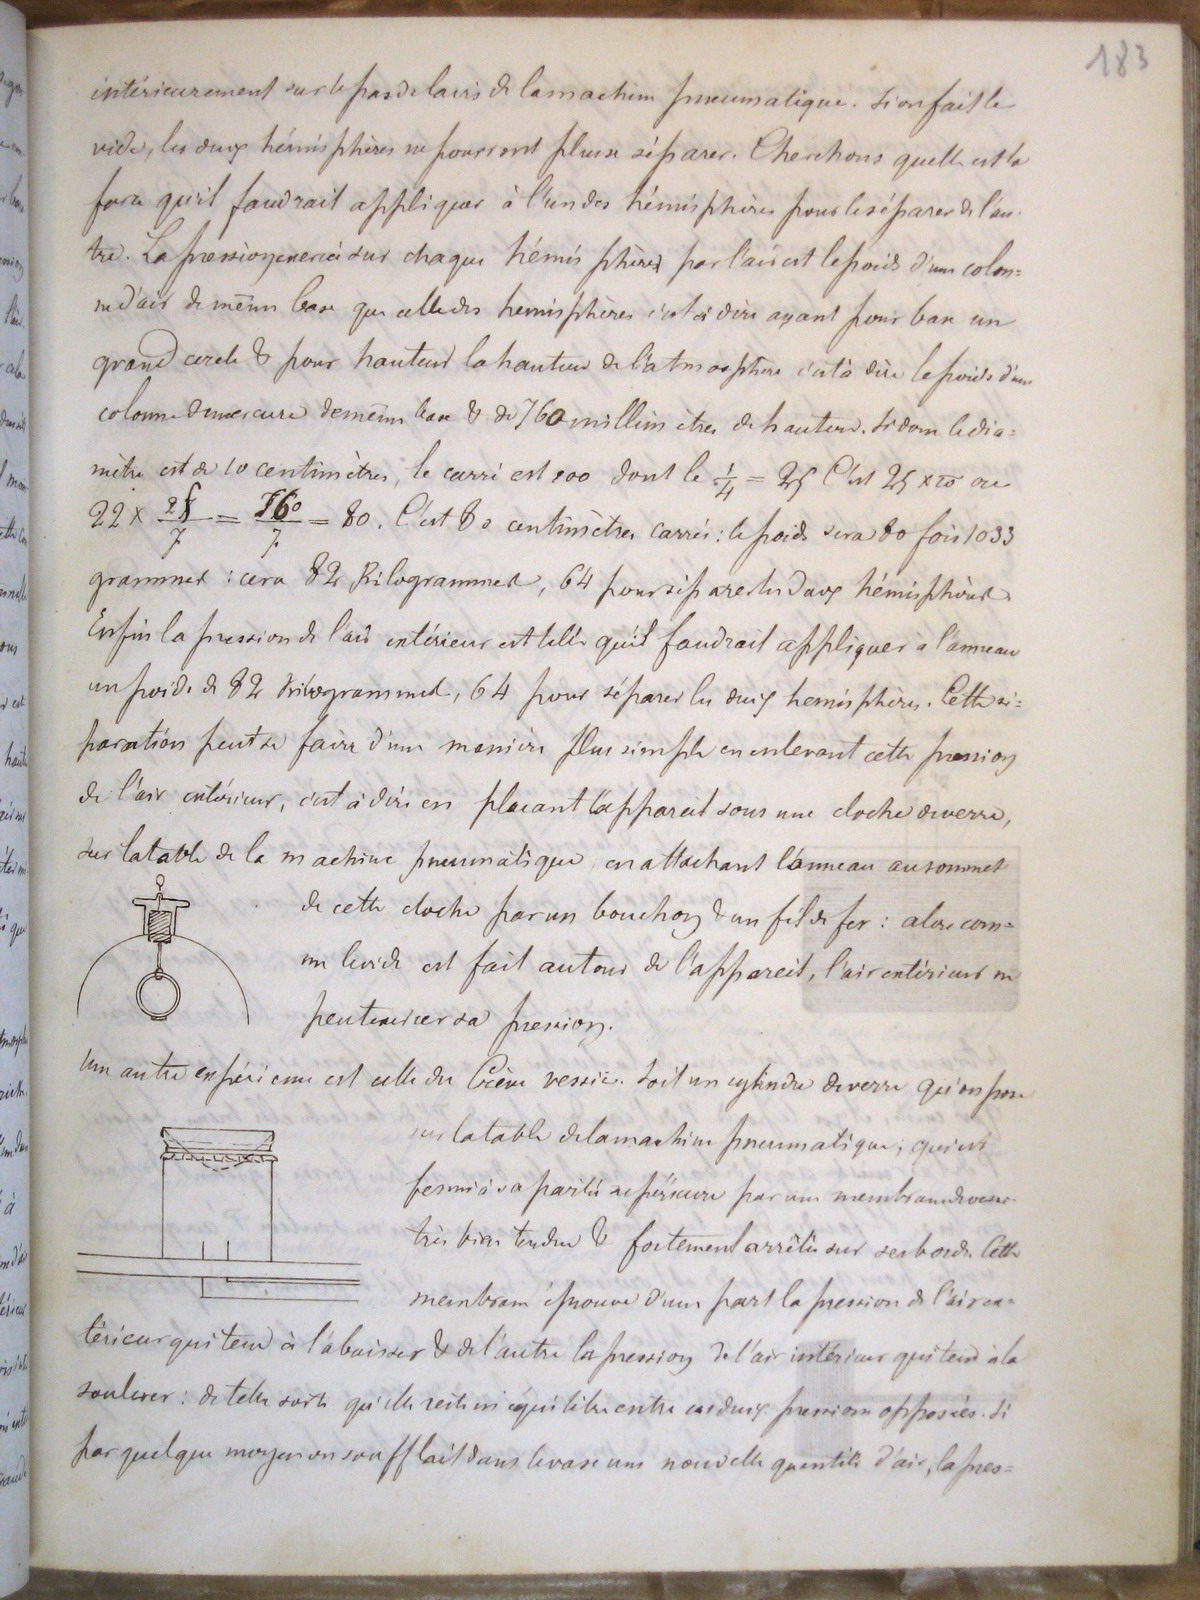 183
intérieurement sur le pas de la vis de la machine pneumatique. Si on fait le
vide, les deux hémisphères ne pourront plus se séparer. Cherchons quelle est la
force qu'il faudrait appliquer à l'un des hémisphères pour le séparer de l'au-
tre. La pression exercée sur chaque hémisphère par l'air est le poids d'une colon=
ne d'air de même base que celle des hémisphères c'est à dire ayant pour base un
grand cercle & pour hauteur la hauteur de l'atmosphère c'est à dire le poids d'une
colonne de mercure de même base & de 760 millimètres de hauteur. Si donc le dia=
mètre est de 10 centimètres, le carré est 100 dont le 1/4 = 25 C'est 25 × ou
22 × 25/7 = 560/7 = 80. C'est 80 centimètres carrés : le poids sera 80 fois 1033
grammes : cera 82 Kilogrammes, 64 pour séparer les deux hémisphères.
Enfin la pression de l'air extérieur est telle qu'il faudrait appliquer à l'anneau
un poids de 82 Kilogrammes, 64 pour séparer les deux hémisphères. Cette sé=
paration peut se faire d'une manière plus simple en enlevant cette pression
de l'air extérieur, c'est à dire en placant l'appareil sous une cloche de verre,
sur la table de la machine pneumatique en attachant l'anneau au sommet
de cette cloche par un bouchon & un fil de fer : alors com=
me le vide est fait autour de l'appareil, l'air extérieur ne
peut exercer sa pression.
Une autre expérience est celle du Crève vessie. Soit un cylindre de verre qu'on pose
sur la table de la machine pneumatique ; qui est
fermé à sa partie supérieure par une membrane de vessie
très bien tendue & fortement arrêtée sur ses bords. Cette
membrane éprouve d'une part la pression de l'air ex=
térieur qui tend à l'abaisser & de l'autre la pression de l'air intérieur qui tend à la
soulever : de telle sorte qu'elle reste en équilibre entre ces deux pressions opposées. Si
par quelque moyen on soufflait dans le vase une nouvelle quantité d'air, la pres=